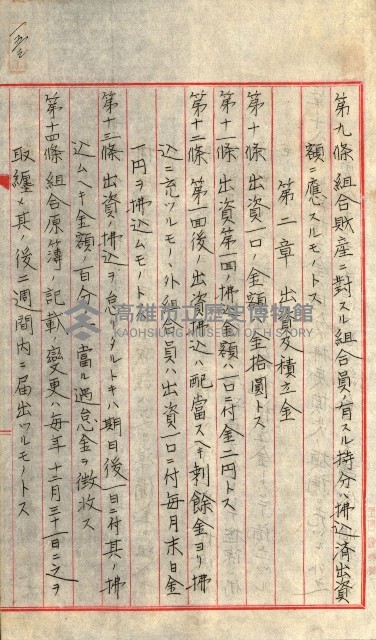 第九條 組合財産ニ對スル組合員ノ有スル持分ハ拂込済出資
額ニ應スルモノトス
第二章 出資及積立金
第十條 出資一口ノ金額金拾圓トス
第十一條 出資第一回ノ拂込金額ハ一口ニ付金二円トス
第十二條 第一回後ノ出資拂込ハ配當スヘキ剰餘金ヨリ拂
込ニ充ツルモノノ外組合員ハ出資一口ニ付毎月末日金
一円ヲ拂込ムモノトス
第十三條 出資ノ拂込ヲ怠リタルトキハ期日後一日ニ付其ノ拂
込ムヘキ金額ノ百分ノ一ニ當ル過怠金ヲ徴收ス
第十四條 組合原簿ノ記載ノ變更ハ毎年十二月三十一日ニ之ヲ
取纏メ其ノ後二週間内ニ届出ツルモノトス
高雄市立歷史博物館
KAOHSIUNG MUSEUM OF HISTORY